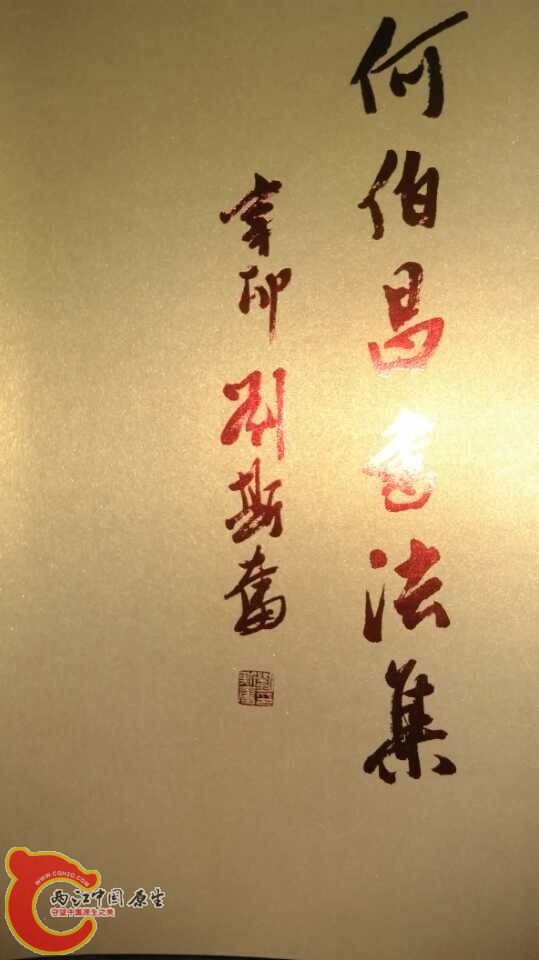 何伯昌书法集
辛卯 刘斯奋
WWW.CQH2O.COM
两江中国原生
守望中国原生之美